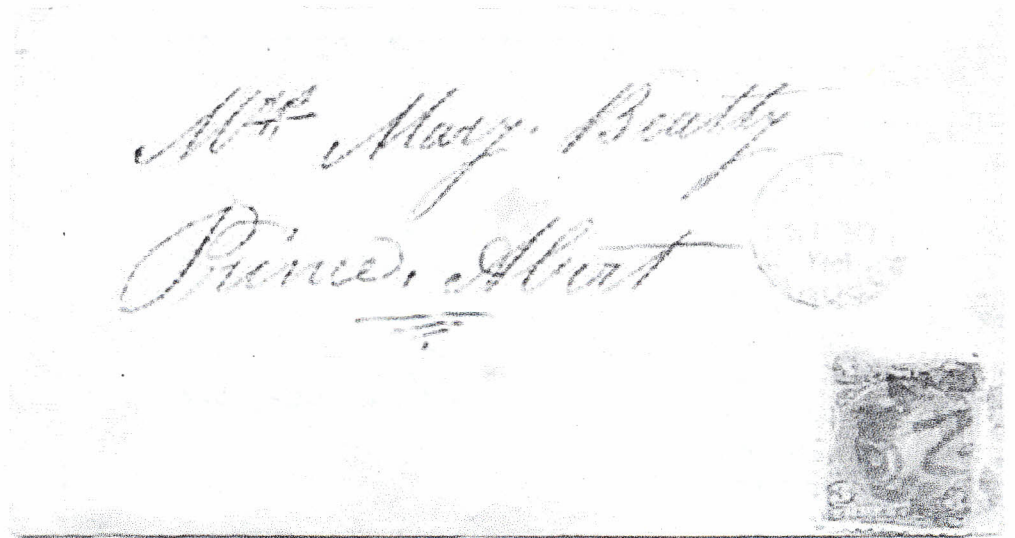 Mrs Mary. Beatty
Prince, Albert